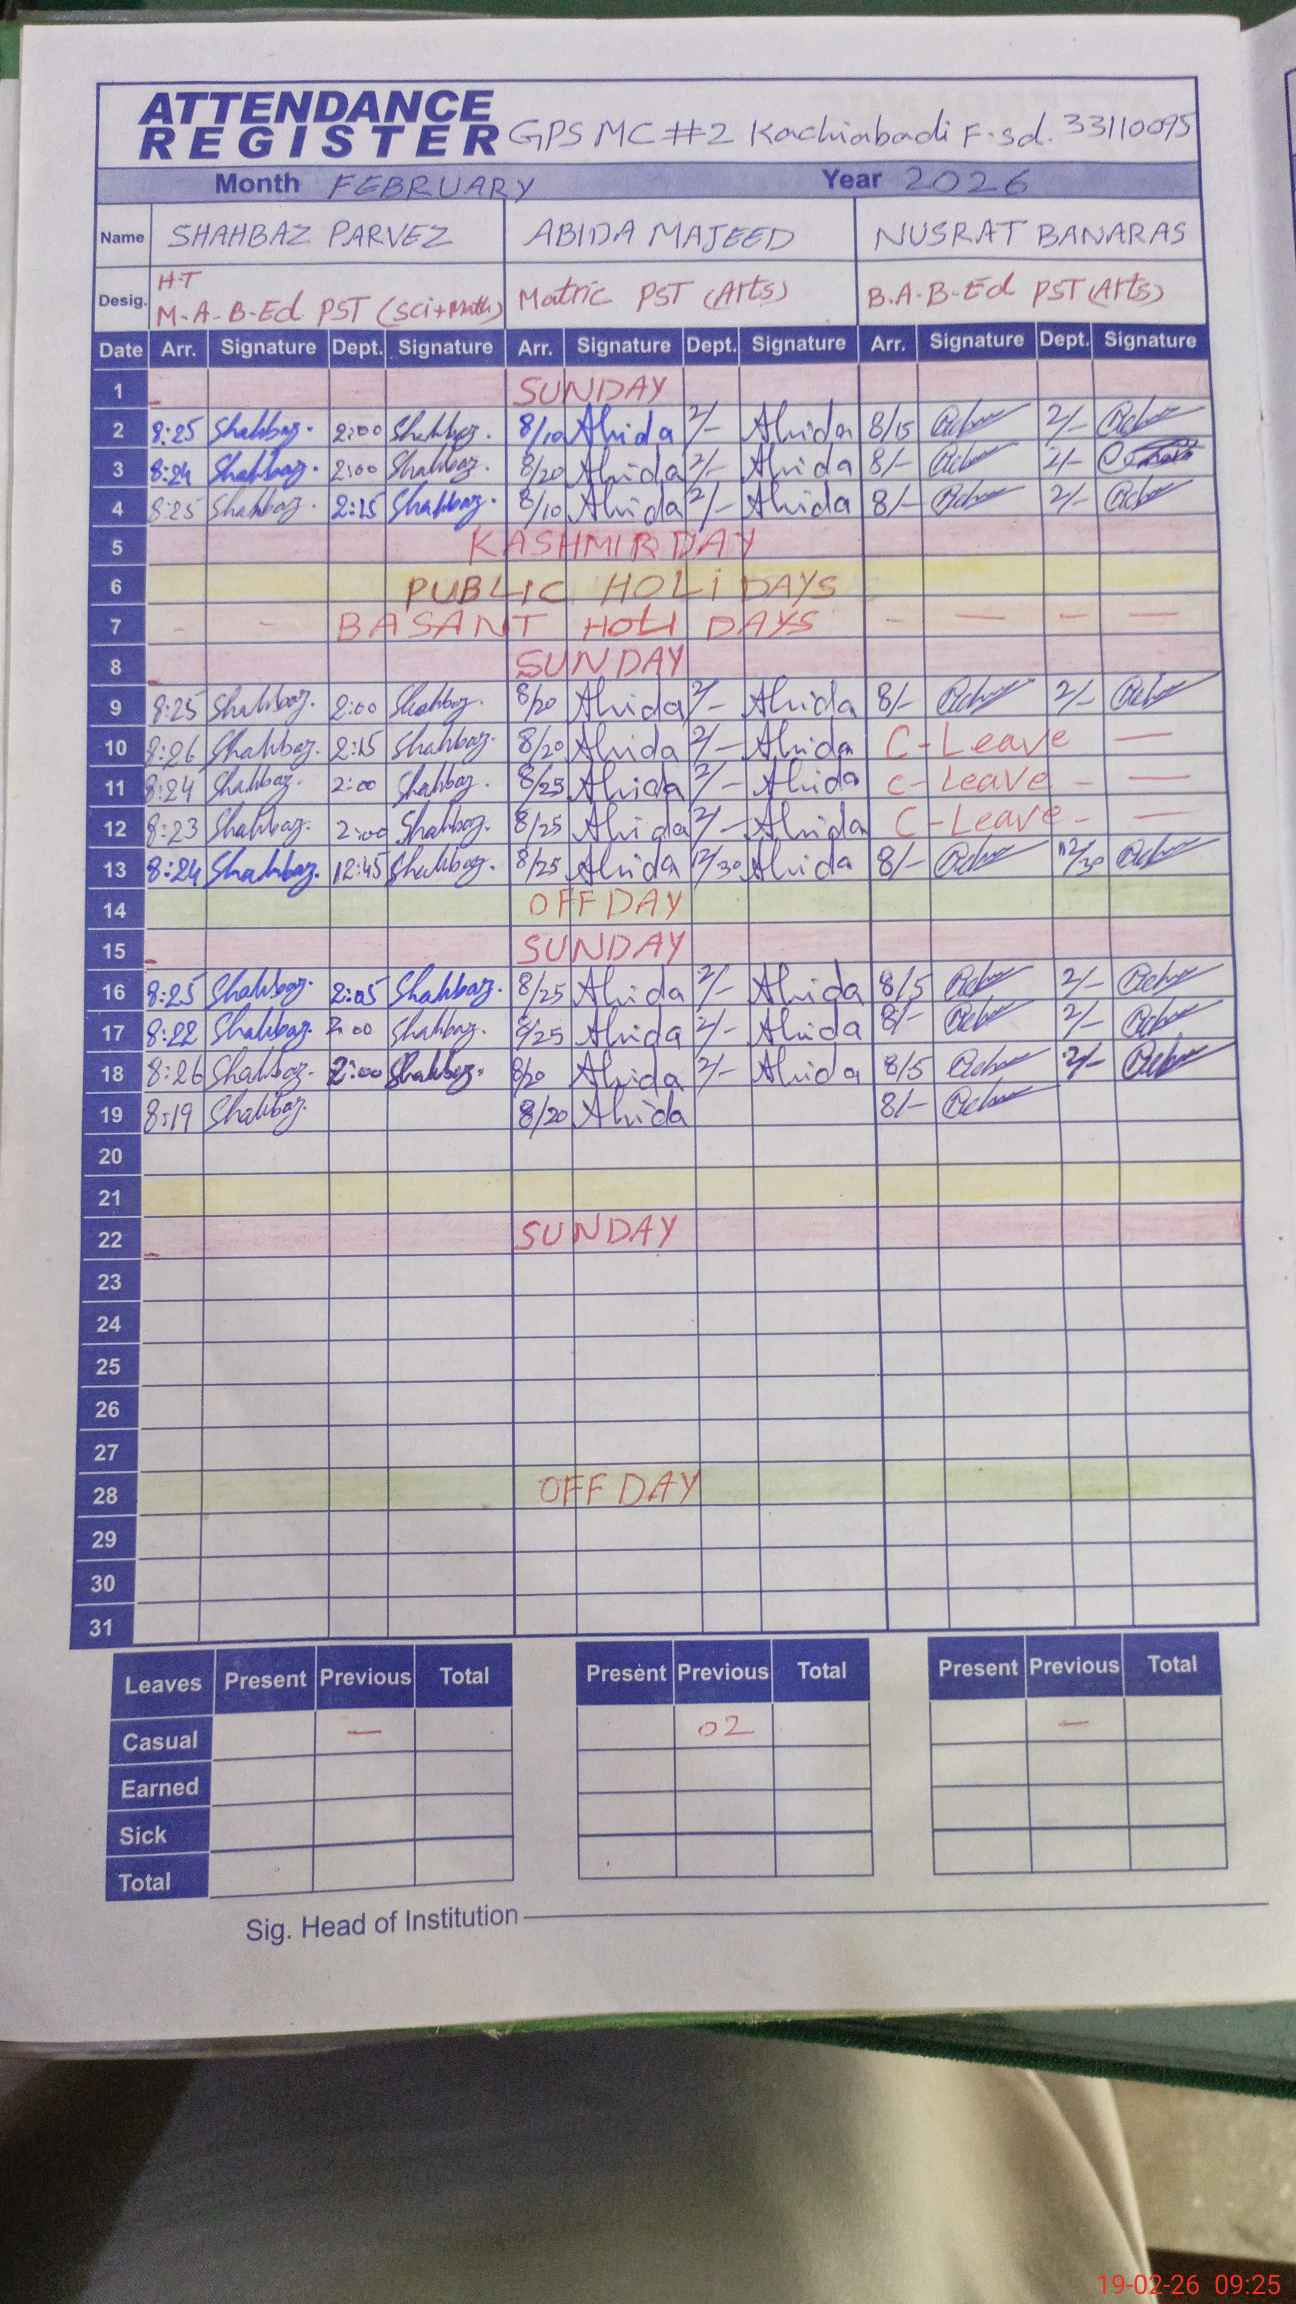 ATTENDANCE
REGISTER GPS MC #2 Kachiabadi F.sd. 33110095
Month FEBRUARY Year 2026
Name SHAHBAZ PARVEZ ABIDA MAJEED NUSRAT BANARAS
Desig. H.T M.A-B-Ed PST (Sci+Math) Matric PST (Arts) B.A-B-Ed PST (Arts)
Date Arr. Signature Dept. Signature Arr. Signature Dept. Signature Arr. Signature Dept. Signature
1 SUNDAY
2 8:25 Shahbaz. 2:00 Shahbaz. 8/10 Abida 2/- Abida 8/15 2/-
3 8:24 Shahbaz. 2:00 Shahbaz. 8/20 Abida 2/- Abida 8/- 2/-
4 8:25 Shahbaz. 2:15 Shahbaz. 8/10 Abida 2/- Abida 8/- 2/-
5 KASHMIR DAY
6 PUBLIC HOLIDAYS
7 - - BASANT HOLIDAYS - — - —
8 SUNDAY
9 8:25 Shahbaz. 2:00 Shahbaz. 8/20 Abida 2/- Abida 8/- 2/-
10 8:26 Shahbaz. 2:15 Shahbaz. 8/20 Abida 2/- Abida C-Leave —
11 8:24 Shahbaz. 2:00 Shahbaz. 8/25 Abida 2/- Abida C-Leave - —
12 8:23 Shahbaz. 2:00 Shahbaz. 8/25 Abida 2/- Abida C-Leave - —
13 8:24 Shahbaz. 12:45 Shahbaz. 8/25 Abida 12/30 Abida 8/- 12/30
14 OFF DAY
15 SUNDAY
16 8:25 Shahbaz. 2:05 Shahbaz. 8/25 Abida 2/- Abida 8/5 2/-
17 8:22 Shahbaz. 2:00 Shahbaz. 8/25 Abida 2/- Abida 8/- 2/-
18 8:26 Shahbaz. 2:00 Shahbaz. 8/20 Abida 2/- Abida 8/5 2/-
19 8:19 Shahbaz. 8/20 Abida 8/-
20
21
22 SUNDAY
23
24
25
26
27
28 OFF DAY
29
30
31
Leaves Present Previous Total Present Previous Total Present Previous Total
Casual — 02 —
Earned
Sick
Total
Sig. Head of Institution
19-02-26 09:25